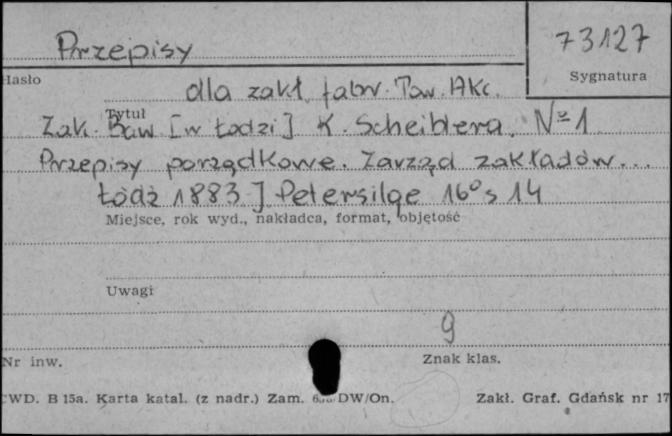 Przepisy
73127
Hasło
Sygnatura
dla zakł. fabr. Tow. Akc.
Tytuł
Zak. Baw [w Łodzi] K. Scheiblera. No 1
Przepisy porządkowe. Zarząd zakładów...
Łódź 1883 J. Petersilge 16° s 14
Miejsce, rok wyd., nakładca, format, objętość
Uwagi
9
Nr inw.
Znak klas.
WD. B 15a. Karta katal. (z nadr.) Zam. DW/On.
Zakł. Graf. Gdańsk nr 17